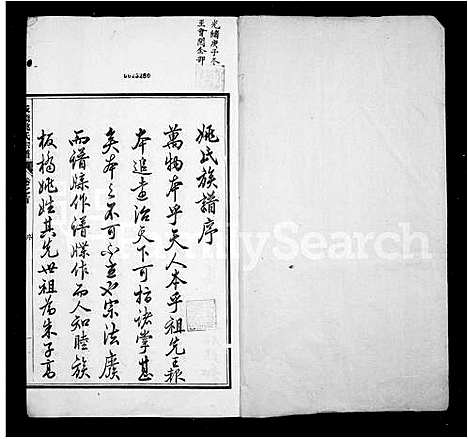 光緒庚子冬
至會閱全部
姚氏族譜序
萬物本乎天人本乎祖先王報
本追遠治天下可指諸掌甚
矣本之不可不立也宗法廢
而譜牒作譜牒作而人知睦族
板橋姚姓其先世祖為朱子高
FamilySearch